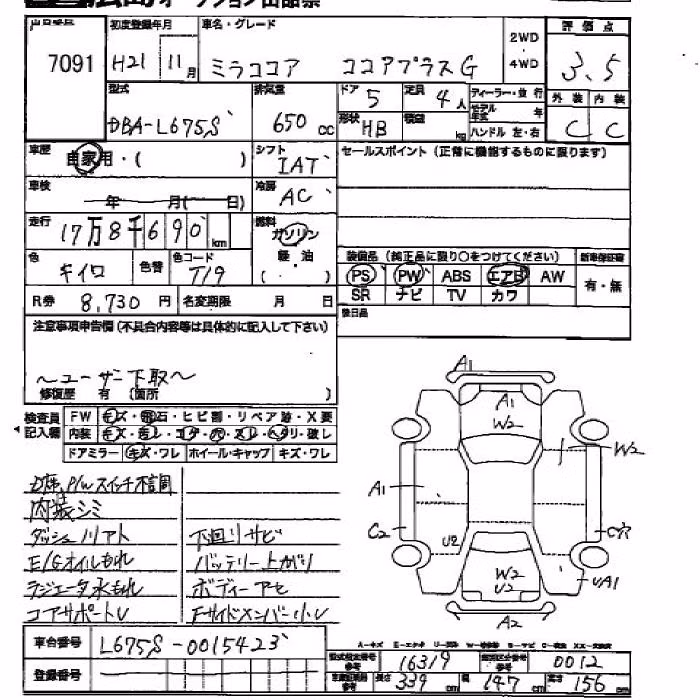 オークション出品票
出品番号 初度登録年月 車名・グレード 2WD 評価点
7091 H21 11月 ミラココア ココアプラスG 4WD 3.5
型式 排気量 ドア 5 定員 4人 ディーラー・並行 外装 内装
DBA-L675S 650cc 形状 HB 積載 kg モデル年式 年 C C
ハンドル 左・右
車歴 自家用・( ) シフト IAT セールスポイント(正常に機能するものに限ります)
車検 年 月( 日) 冷房 AC
走行 17万8千690km 燃料 ガソリン
軽油
( ・ )
色 キイロ 色替 色コード T19
装備品(純正品に限り○をつけてください) 新車保証書
PS PW ABS エアB AW 有・無
SR ナビ TV カワ
R券 8,730円 名変期限 月 日
後日品
注意事項申告欄(不具合内容等は具体的に記入して下さい)
~ユーザー下取~
修復歴 有 〔箇所 〕
検査員記入欄 FW キズ・飛石・ヒビ割・リペア跡・X要
内装 キズ・汚レ・コゲ・穴・スレ・ヘタリ・破レ
ドアミラー キズ・ワレ ホイール・キャップ キズ・ワレ
D席P/Wスイッチ不調
内装シミ
ダッシュノリアト 下廻りサビ
E/Gオイルもれ バッテリー上がり
ラジエータ水もれ ボディーアセ
コアサポートU Fサイドメンバー小U
A1
A1
W2
W2
A1
C2
U2
C穴
W2
U2
UA1
A2
A・キズ E・エクボ U・凹み W・補修跡 S・サビ C・腐食 XX・交換済
車台番号 L675S-0015423
登録番号
型式指定番号 参考 16319 類別区分番号 参考 0012
長さ 339cm 幅 147cm 高さ 156cm